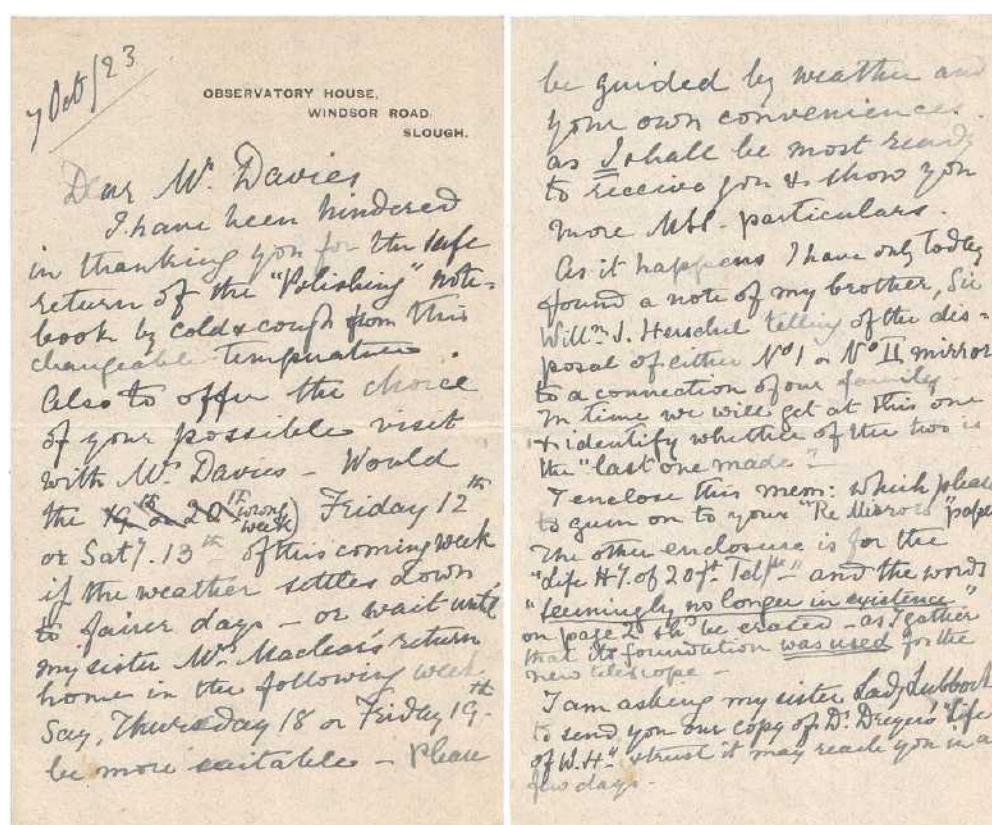 7 Oct/23
OBSERVATORY HOUSE,
WINDSOR ROAD,
SLOUGH.
Dear Mr. Davies
I have been hindered
in thanking you for the safe
return of the "Polishing" note=
book by cold & cough from this
changeable temperature.
Also to offer the choice
of your possible visit
with Mrs. Davies – Would
the 19th or 20th (wrong week) Friday 12th
or Saty. 13th of this coming week
if the weather settles down
to fairer days – or wait until
my sister Mrs. Maclear's return
home in the following week.
Say, Thursday 18 or Friday 19th
be more suitable – Please
be guided by weather and
your own convenience.
as I shall be most ready
to receive you & to show you
more MSS. particulars.
As it happens I have only today
found a note of my brother, Sir
Willm. J. Herschel telling of the dis=
posal of either No I or No II mirror
to a connection of our family.
In time we will get at this one
& identify whether of the two is
the "last one made" –
I enclose this mem: which please
to gum on to your "Re Mirrors" paper
The other enclosure is for the
"Life Hy. of 20ft. Telpe" – and the words
"seemingly no longer in existence"
on page 2 shd be erased – as I gather
that its foundation was used for the
new telescope –
I am asking my sister Lady Lubbock
to send you our copy of Dr. Dreyer's "Life
of W.H." & trust it may reach you in a
few days –